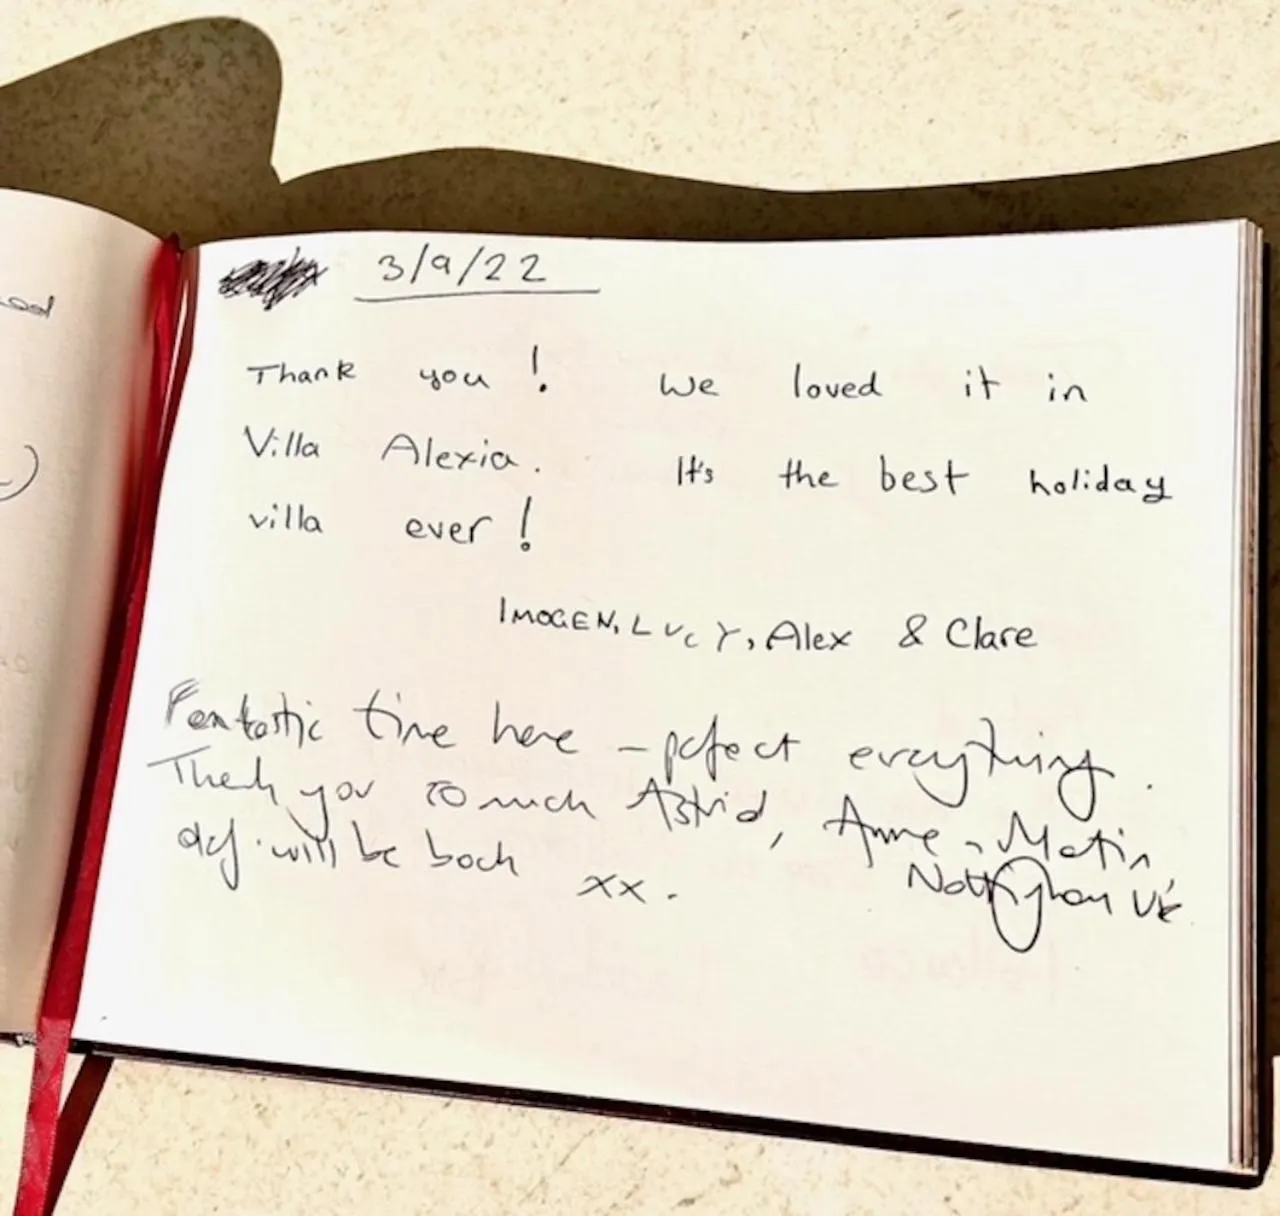 3/9/22
Thank you! We loved it in
Villa Alexia. It's the best holiday
villa ever!
IMOGEN, LUCY, Alex & Clare
Fantastic time here - perfect everything.
Thank you so much Astrid, Anne
will be back xx.
Nottingham UK